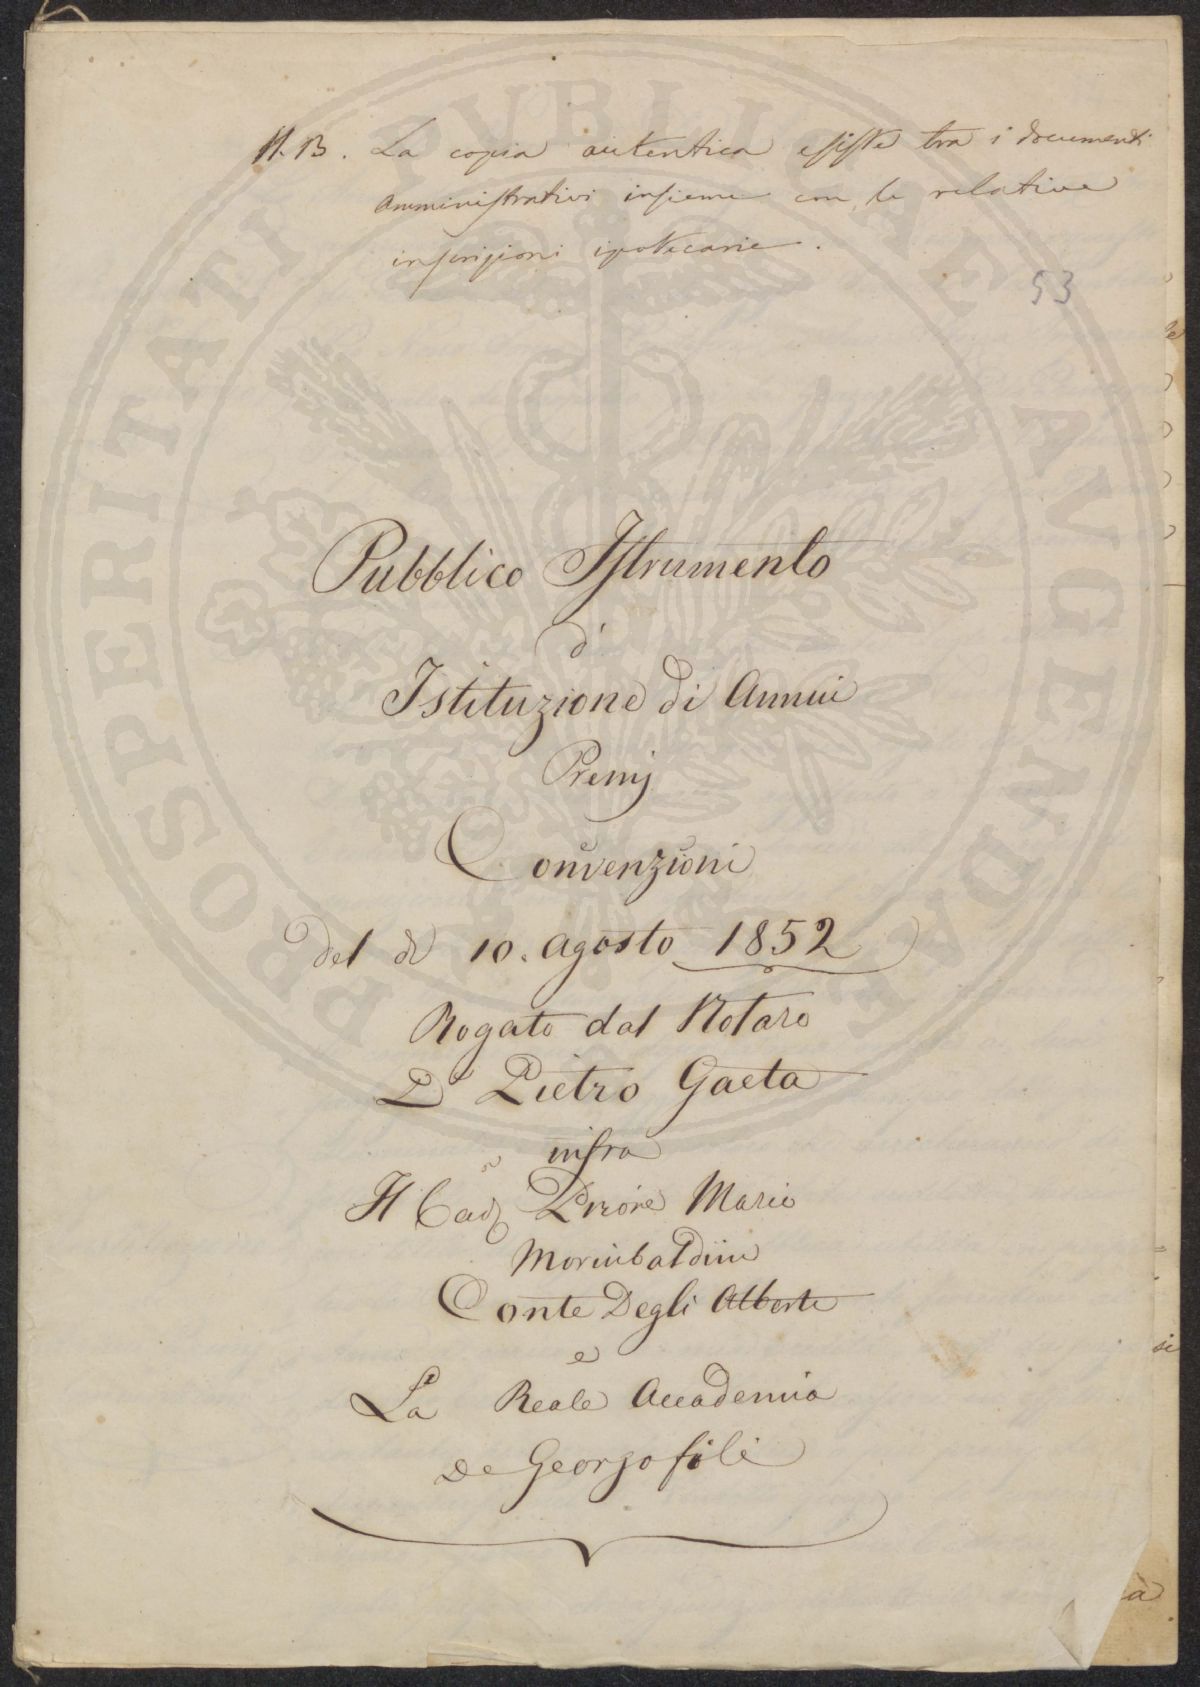 N.B. La copia autentica esiste tra i documenti
Amministrativi insieme con le relative
inscrizioni ipotecarie.
53
Pubblico Istrumento
d'
Istituzione di Annui
Premj
Convenzioni
del dì 10. Agosto 1852
Rogato dal Notaro
Dr Pietro Gaeta
infra
Il Cav Priore Mario
Morinbaldini
Conte Degli Alberti
e
La Reale Accademia
De Georgofili
PROSPERITATI PVBLICAE AVGENDAE